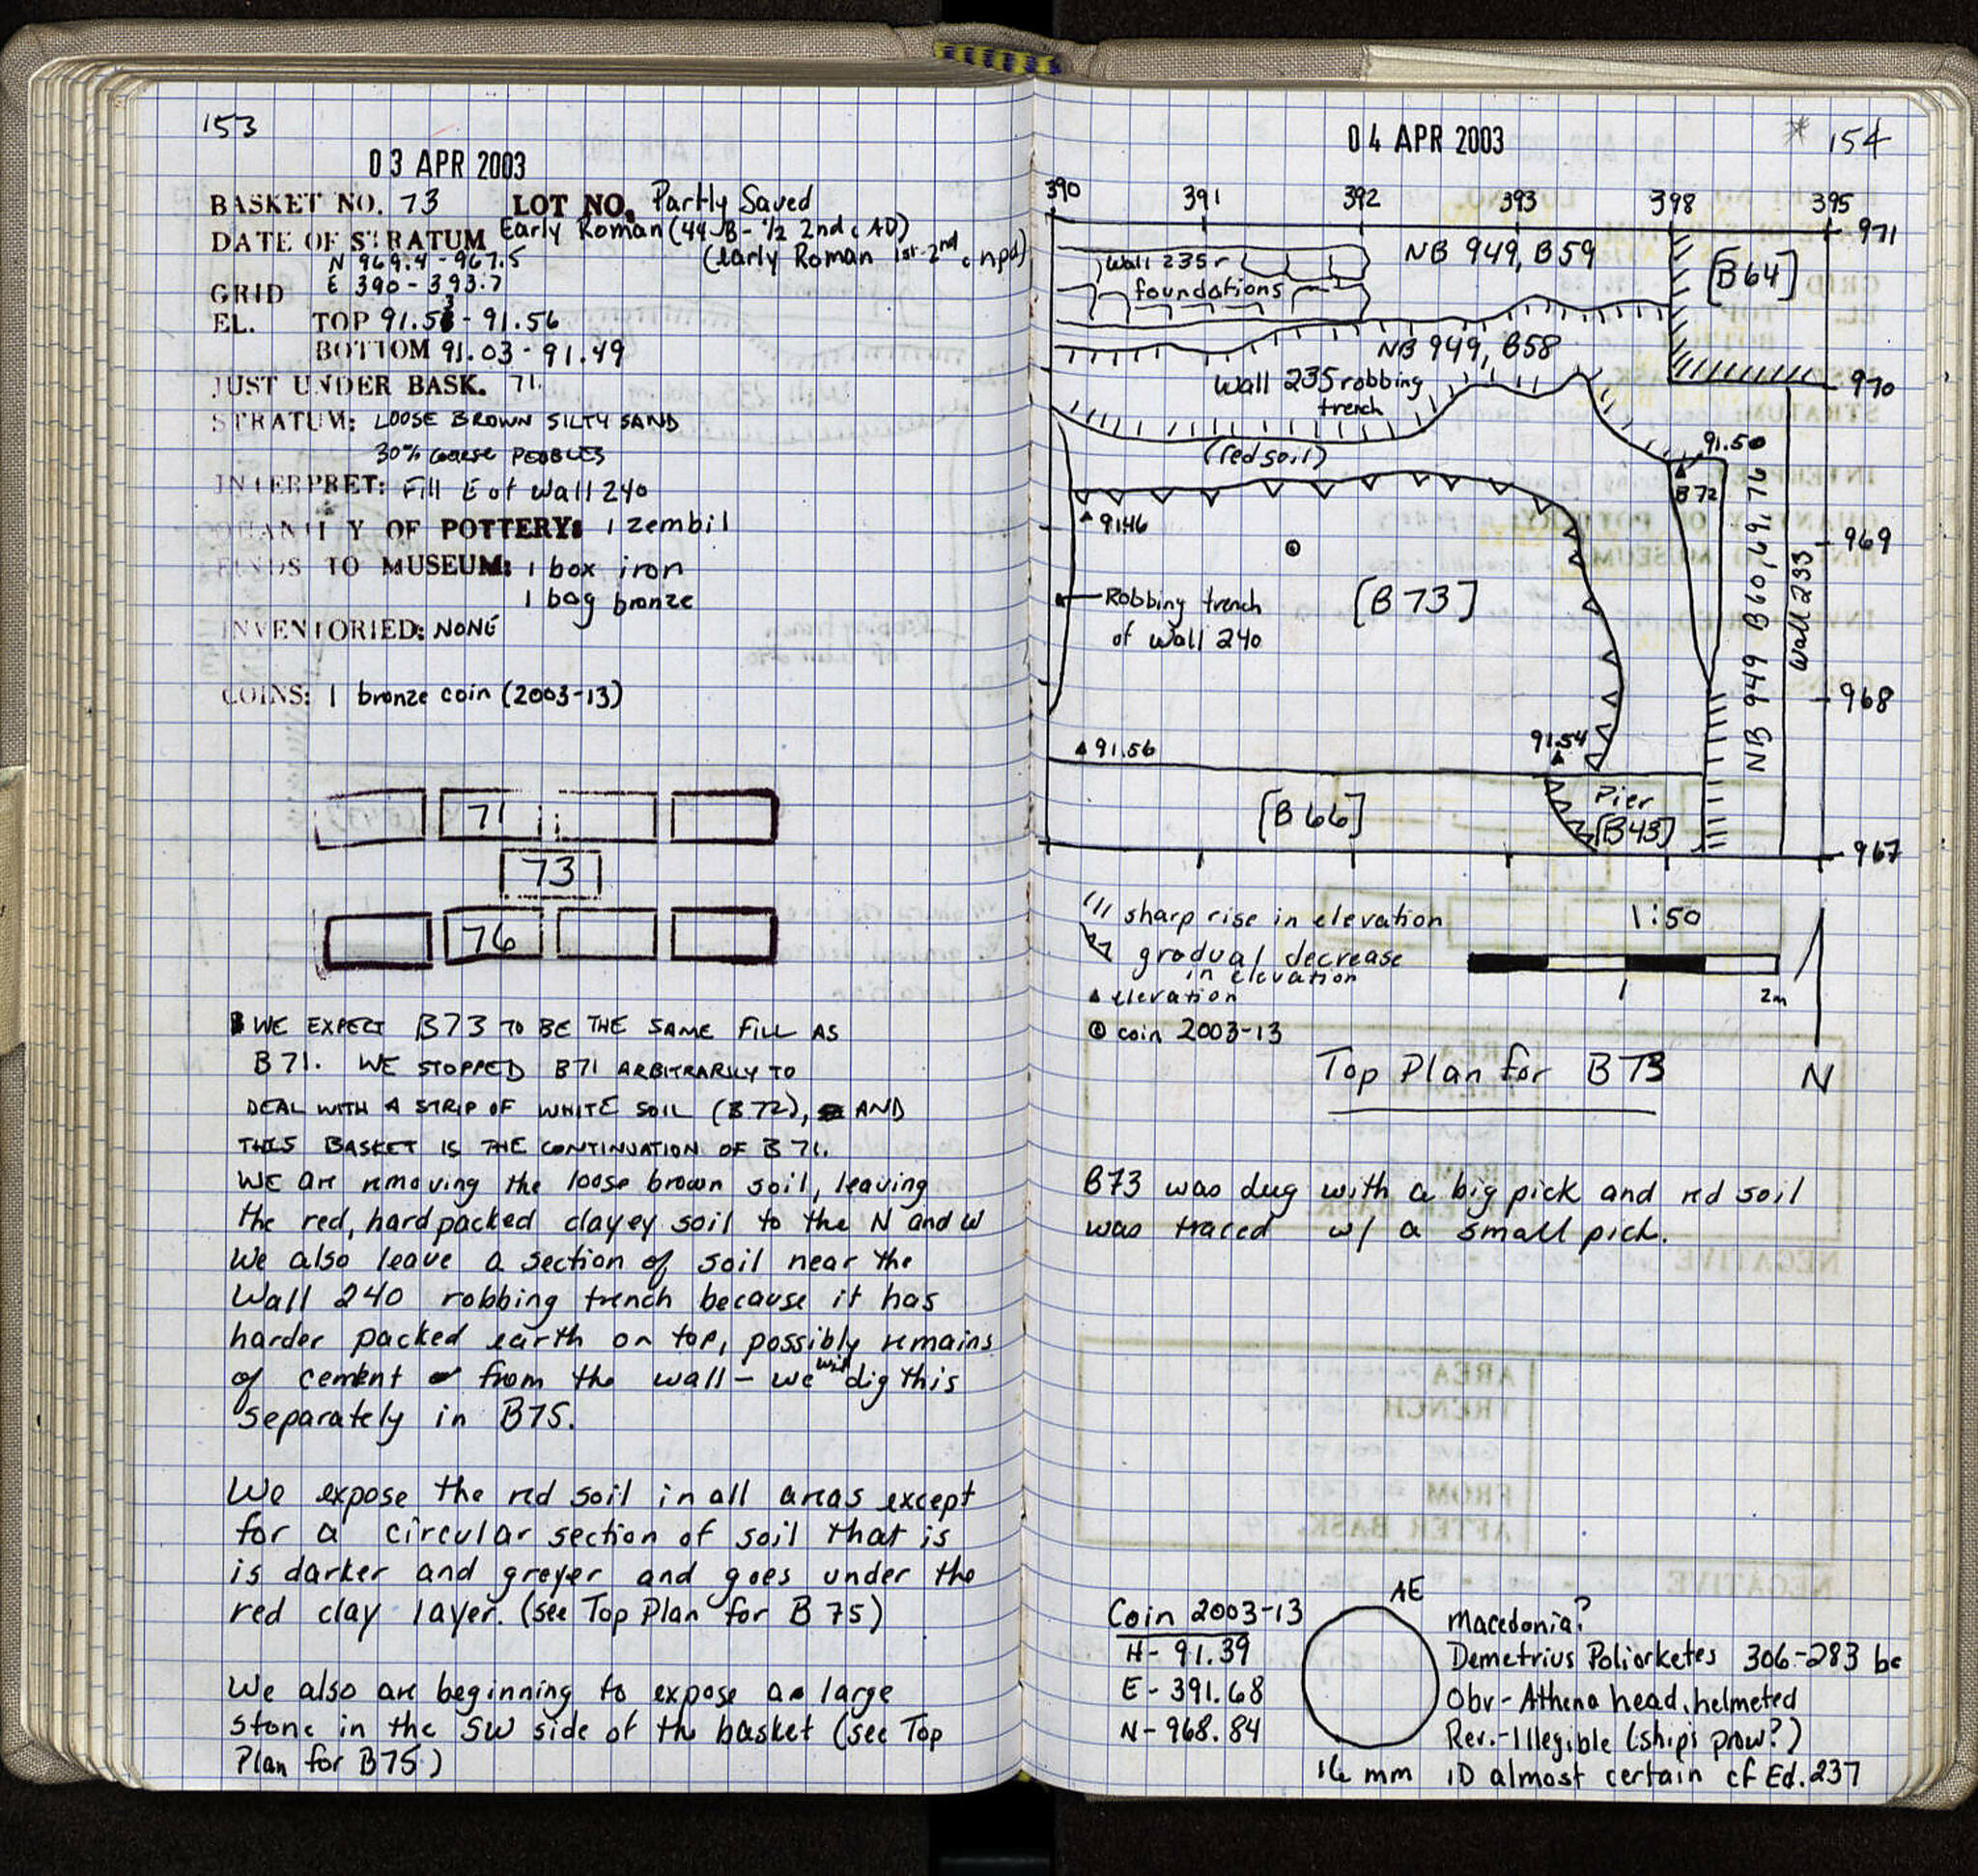 153
03 APR 2003
BASKET NO. 73 LOT NO. Partly Saved
DATE OF STRATUM Early Roman (44 B - 1/2 2nd c AD)
(early Roman 1st-2nd c npd)
N 969.4 - 967.5
GRID E 390 - 393.7
EL. TOP 91.53 - 91.56
BOTTOM 91.03 - 91.49
JUST UNDER BASK. 71.
STRATUM: LOOSE BROWN SILTY SAND
30% coarse PEBBLES
INTERPRET: Fill E of Wall 240
QUANTITY OF POTTERY: 1 zembil
FINDS TO MUSEUM: 1 box iron
1 bag bronze
INVENTORIED: NONE
COINS: 1 bronze coin (2003-13)
71
73
76
WE EXPECT B73 TO BE THE SAME FILL AS
B71. WE STOPPED B71 ARBITRARILY TO
DEAL WITH A STRIP OF WHITE SOIL (B72), AND
THIS BASKET IS THE CONTINUATION OF B71.
WE are removing the loose brown soil, leaving
the red, hard packed clayey soil to the N and W
We also leave a section of soil near the
Wall 240 robbing trench because it has
harder packed earth on top, possibly remains
of cement from the wall - we will dig this
separately in B75.
We expose the red soil in all areas except
for a circular section of soil that is
is darker and greyer and goes under the
red clay layer. (see Top Plan for B75)
We also are beginning to expose a large
stone in the SW side of the basket (see Top
Plan for B75)
04 APR 2003
* 154
390 391 392 393 398 395
971
Wall 235
foundations
NB 949, B59
[B64]
NB 949, B58
970
Wall 235 robbing
trench
(red soil)
91.50
B72
91.46
969
Robbing trench
of Wall 240
[B73]
NB 949 B60, 69, 76
Wall 233
968
91.56
91.54
[B66]
Pier
[B43]
967
sharp rise in elevation
gradual decrease
in elevation
elevation
coin 2003-13
1:50
1
2m
N
Top Plan for B73
B73 was dug with a big pick and red soil
was traced w/ a small pick.
Coin 2003-13
H- 91.39
E- 391.68
N- 968.84
AE
16 mm
Macedonia?
Demetrius Poliorketes 306-283 bc
Obv- Athena head, helmeted
Rev.- Illegible (ship's prow?)
ID almost certain cf Ed. 237